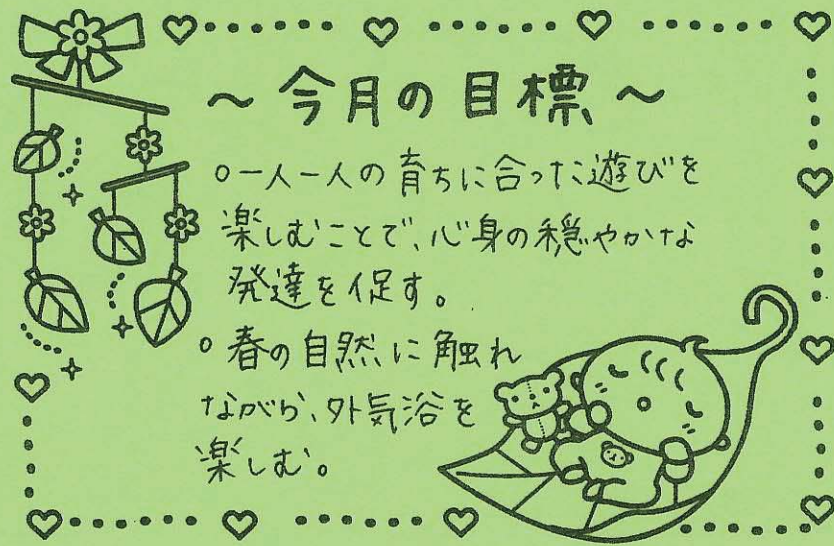 ～今月の目標～
○一人一人の育ちに合った遊びを
楽しむことで、心身の穏やかな
発達を促す。
○春の自然に触れ
ながら、外気浴を
楽しむ。